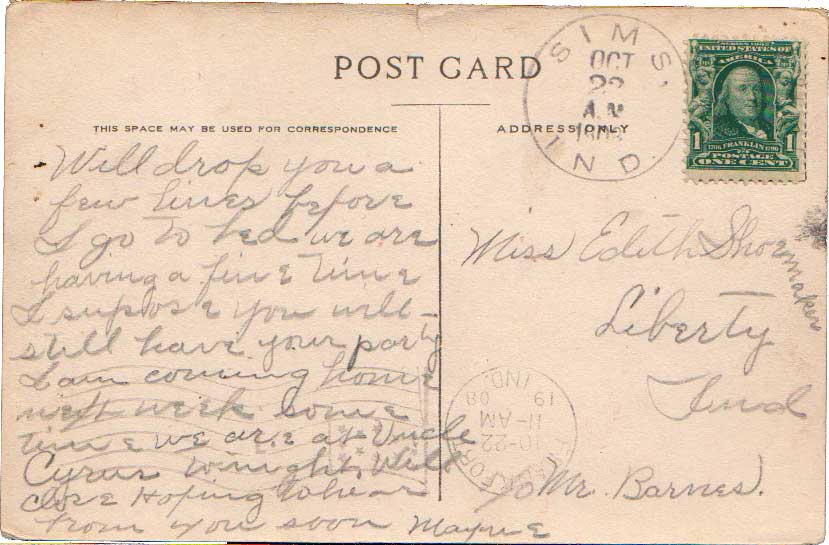 POST CARD
THIS SPACE MAY BE USED FOR CORRESPONDENCE
ADDRESS ONLY
SIMS,
OCT
22
A.M
IND
SERIES 1902
UNITED STATES OF
AMERICA
1 1706 FRANKLIN 1790 1
POSTAGE
ONE CENT
Will drop you a
few lines before
I go to bed we are
having a fine time
I supose you will
still have your party
I am coming home
next week some
time we are at Uncle
Cyrus tonight. Will
close Hoping to hear
from you soon Mayme
Miss Edith Shoemaker
Liberty
Ind
c/o Mr. Barnes.
10-22
11-AM
19 08
IND.